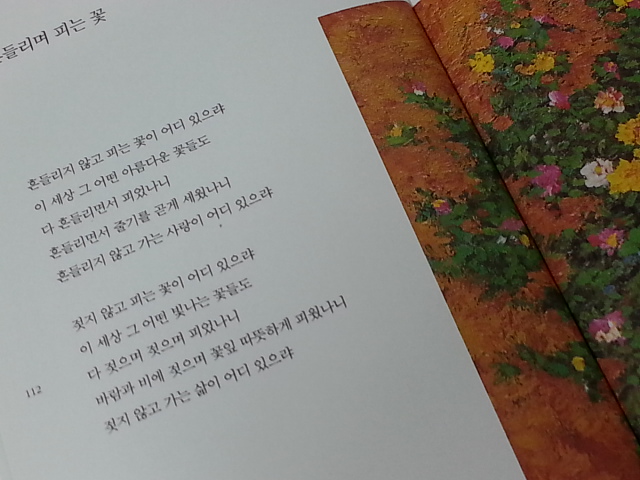 흔들리며 피는 꽃
흔들리지 않고 피는 꽃이 어디 있으랴
이 세상 그 어떤 아름다운 꽃들도
다 흔들리면서 피었나니
흔들리면서 줄기를 곧게 세웠나니
흔들리지 않고 가는 사랑이 어디 있으랴
젖지 않고 피는 꽃이 어디 있으랴
이 세상 그 어떤 빛나는 꽃들도
다 젖으며 젖으며 피었나니
바람과 비에 젖으며 꽃잎 따뜻하게 피웠나니
젖지 않고 가는 삶이 어디 있으랴
112